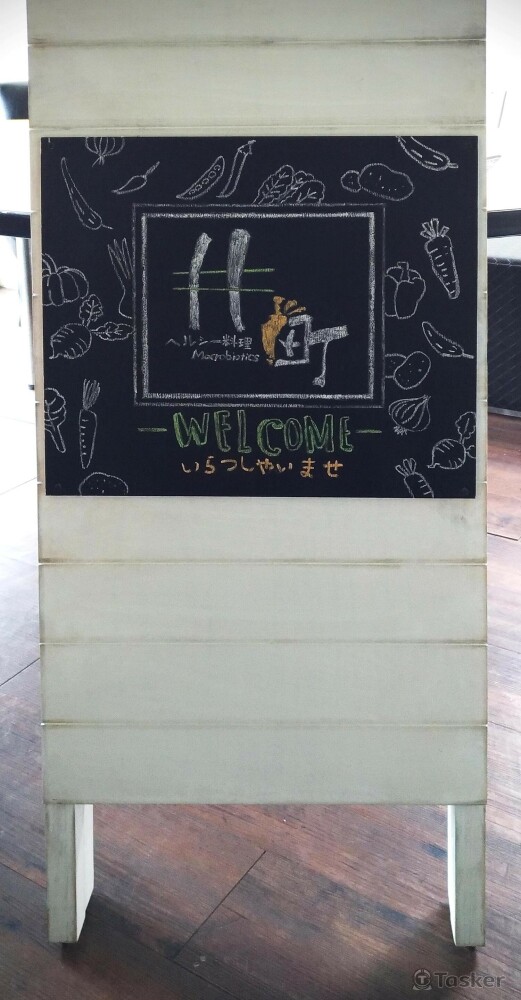 井町
ヘルシー料理
Macrobiotics
WELCOME
いらつしやいませ
Tasker